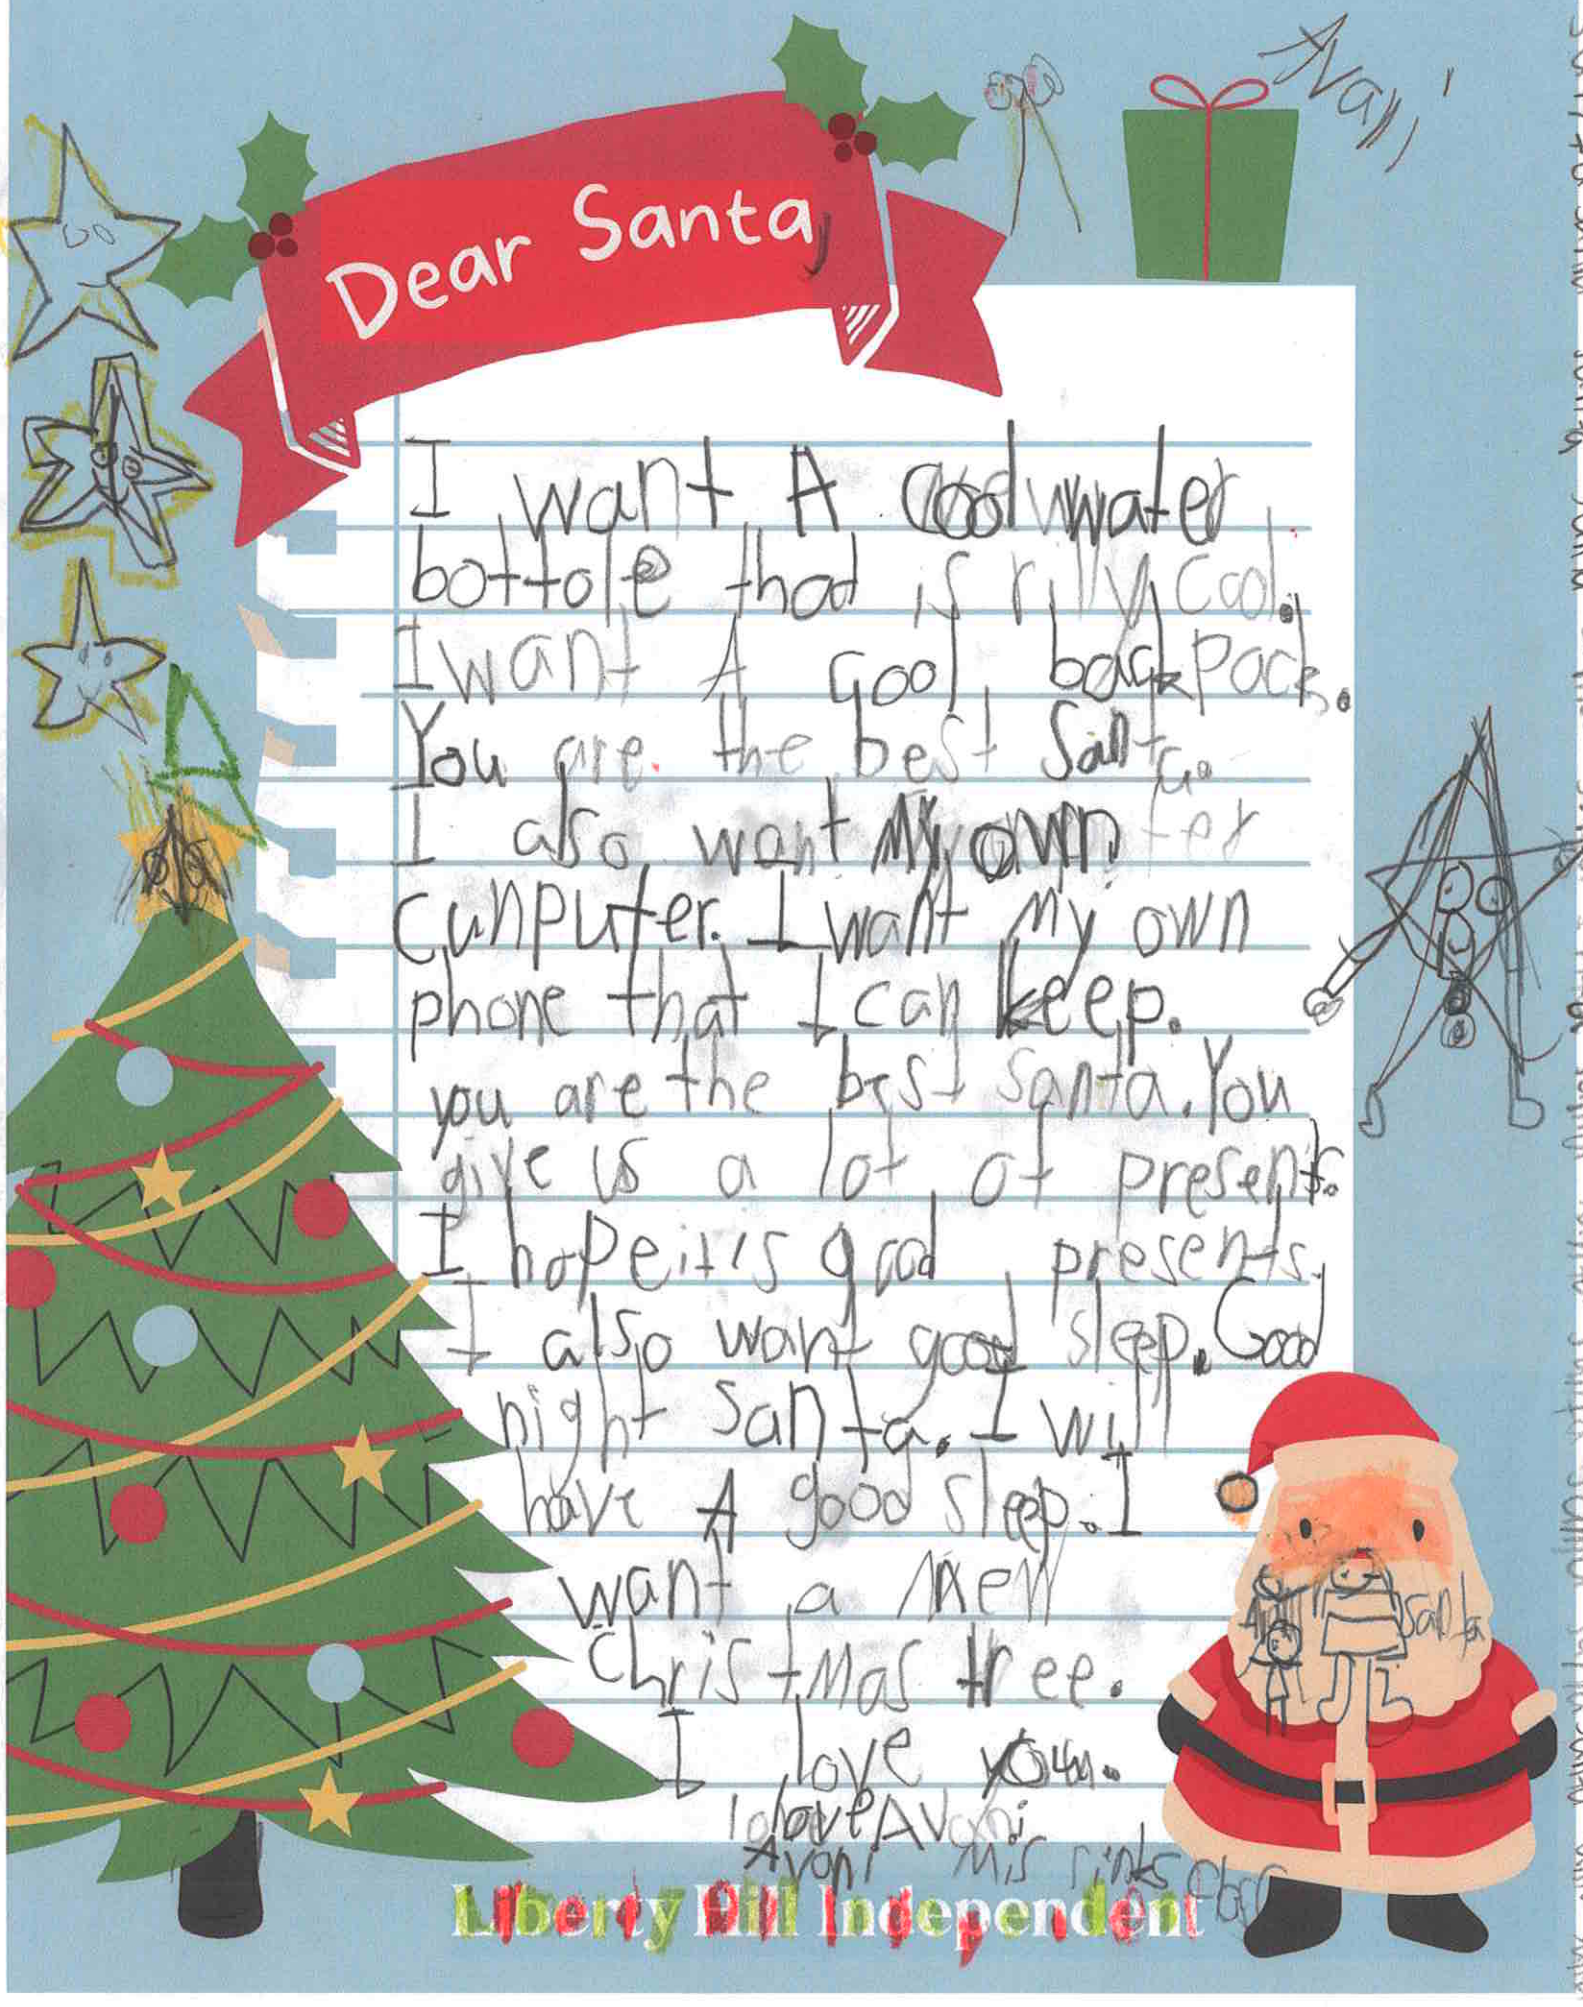 Avani
Dear Santa,
I want A cool water
bottole that is rilly cool.
I want A cool backpack.
You are the best Santa.
I also want My own
cunputer. I want My own
phone that I can keep.
you are the best Santa. You
give us a lot of presents.
I hope it is good presents.
I also want good sleep. Good
night Santa. I will
have A good sleep. I
want a new
Christmas tree.
I love you.
love Avani
Avani Mis
Santa
Liberty Hill Independent